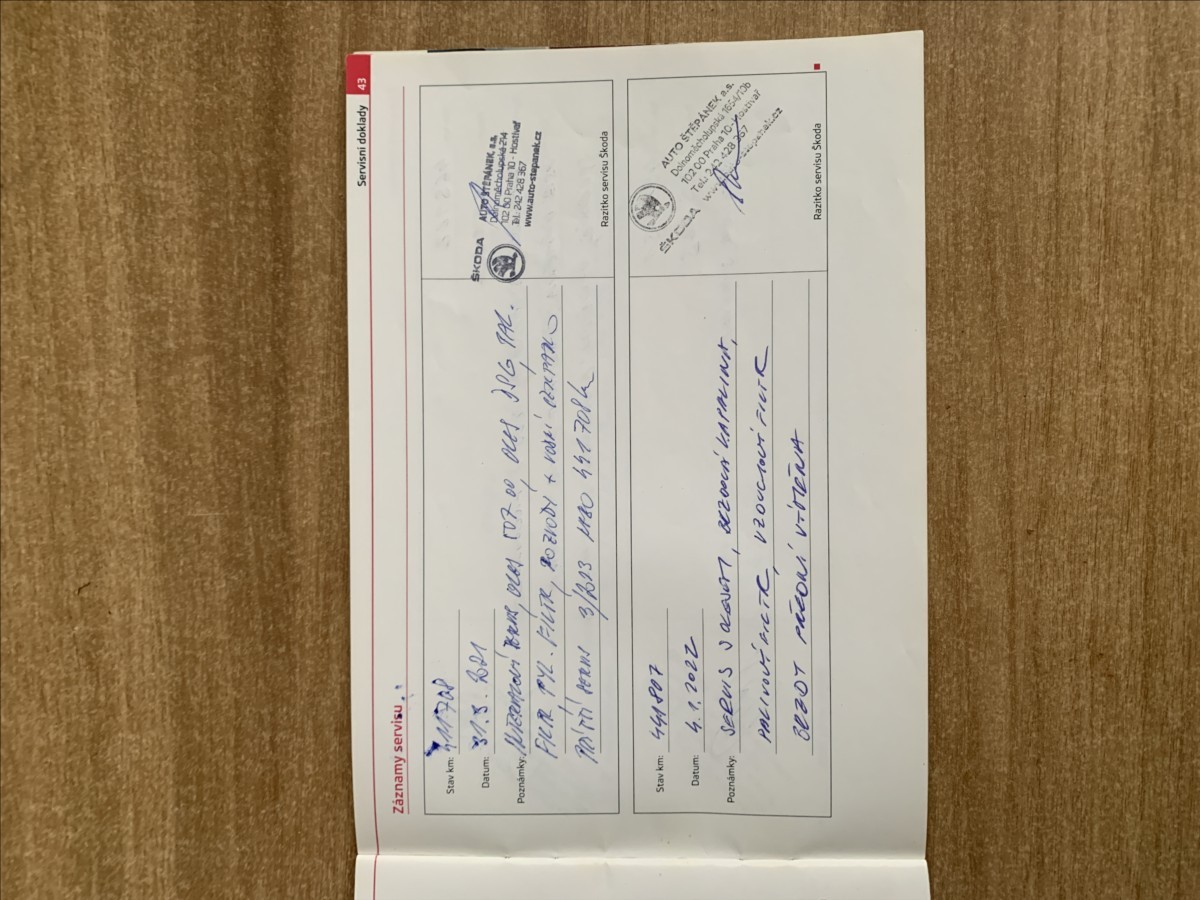 Servisní doklady 43
Záznamy servisu
Stav km: 411708
Datum: 31.5.2021
Poznámky: SERVIS, OLEJ DSG,
FILTR PYL. FILTR, ROZVODY + VODNÍ
PŘÍŠTÍ SERVIS 3/2023 NEBO 441708km
ŠKODA
AUTO ŠTĚPÁNEK, a.s.
Dolnoměcholupská 214
102 00 Praha 10 - Hostivař
Tel.: 242 428 367
www.auto-stepanek.cz
Razítko servisu Škoda
Stav km: 441807
Datum: 4.1.2022
Poznámky: SERVIS S OLEJEM, BRZDOVÁ KAPALINA,
PALIVOVÝ FILTR, VZDUCHOVÝ FILTR
BRZDY PŘEDNÍ VÝMĚNA
ŠKODA
AUTO ŠTĚPÁNEK, a.s.
Dolnoměcholupská 1654/19b
102 00 Praha 10 - Hostivař
Tel.: 242 428 367
Razítko servisu Škoda